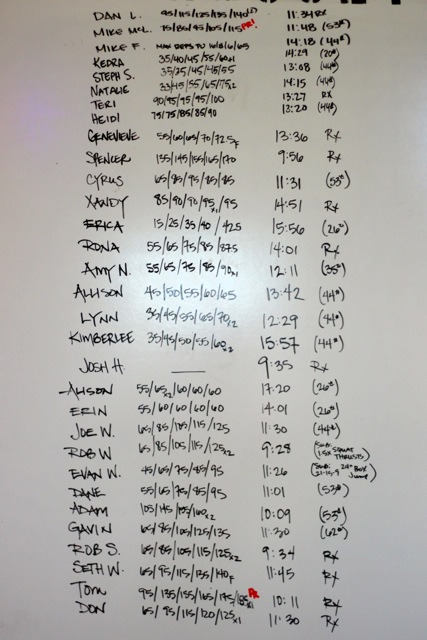 DAN L. 95/115/125/135/140(F) 11:34 Rx
MIKE McL. 75/85/95/105/115 PR! 11:48 (53#)
MIKE F. MAX REPS TO 14:18 (44#)
KEDRA 35/40/45/55/60x1 14:29 (20#)
STEPH S. 35/35/45/45/55 13:08 (44#)
NATALIE 33/45/55/65/75x2 14:15 (44#)
TERI 90/95/95/95/100 13:27 Rx
HEIDI 75/75/85/85/90 13:20 (44#)
GENEVIEVE 55/60/65/70/72.5F 13:36 Rx
SPENCER 135/145/155/165/170 9:56 Rx
CYRUS 65/85/95/85/85 11:31 (53#)
XANDY 85/90/90/95x1/95 14:51 Rx
ERICA 15/25/35/40/42.5 15:56 (26#)
RONA 55/65/75/85/87.5 14:01 Rx
AMY N. 55/65/75/85/90x1 12:11 (35#)
ALLISON 45/50/55/60/65 13:42 (44#)
LYNN 35/45/55/65/70x2 12:29 (44#)
KIMBERLEE 35/45/50/55/60x2 15:57 (44#)
JOSH H. — 9:35 Rx
ALISON 55/65x2/60/60/60 17:20 (26#)
ERIN 55/60/60/60/60 14:01 (26#)
JOE W. 65/85/105/115/125 11:30 (44#)
ROB W 65/85/105/115/125x2 9:28 (SUB: 1.5x SQUAT THRUSTS)
EVAN W. 45/65/75/85/95 11:26 (SUB: 24" BOX 21-15-9 JUMP)
DANE 55/65/75/85/95 11:01 (53#)
ADAM 105/145/155/160x2 10:09 (53#)
GAVIN 65/85/105/125/135 11:30 (62#)
ROB S. 65/85/105/115/125x2 9:34 Rx
SETH W. 65/95/115/135/140F 11:45 Rx
TOM 95/135/155/165/175/185x1 PR 10:11 Rx
DON 65/95/115/120/125x1 11:30 Rx